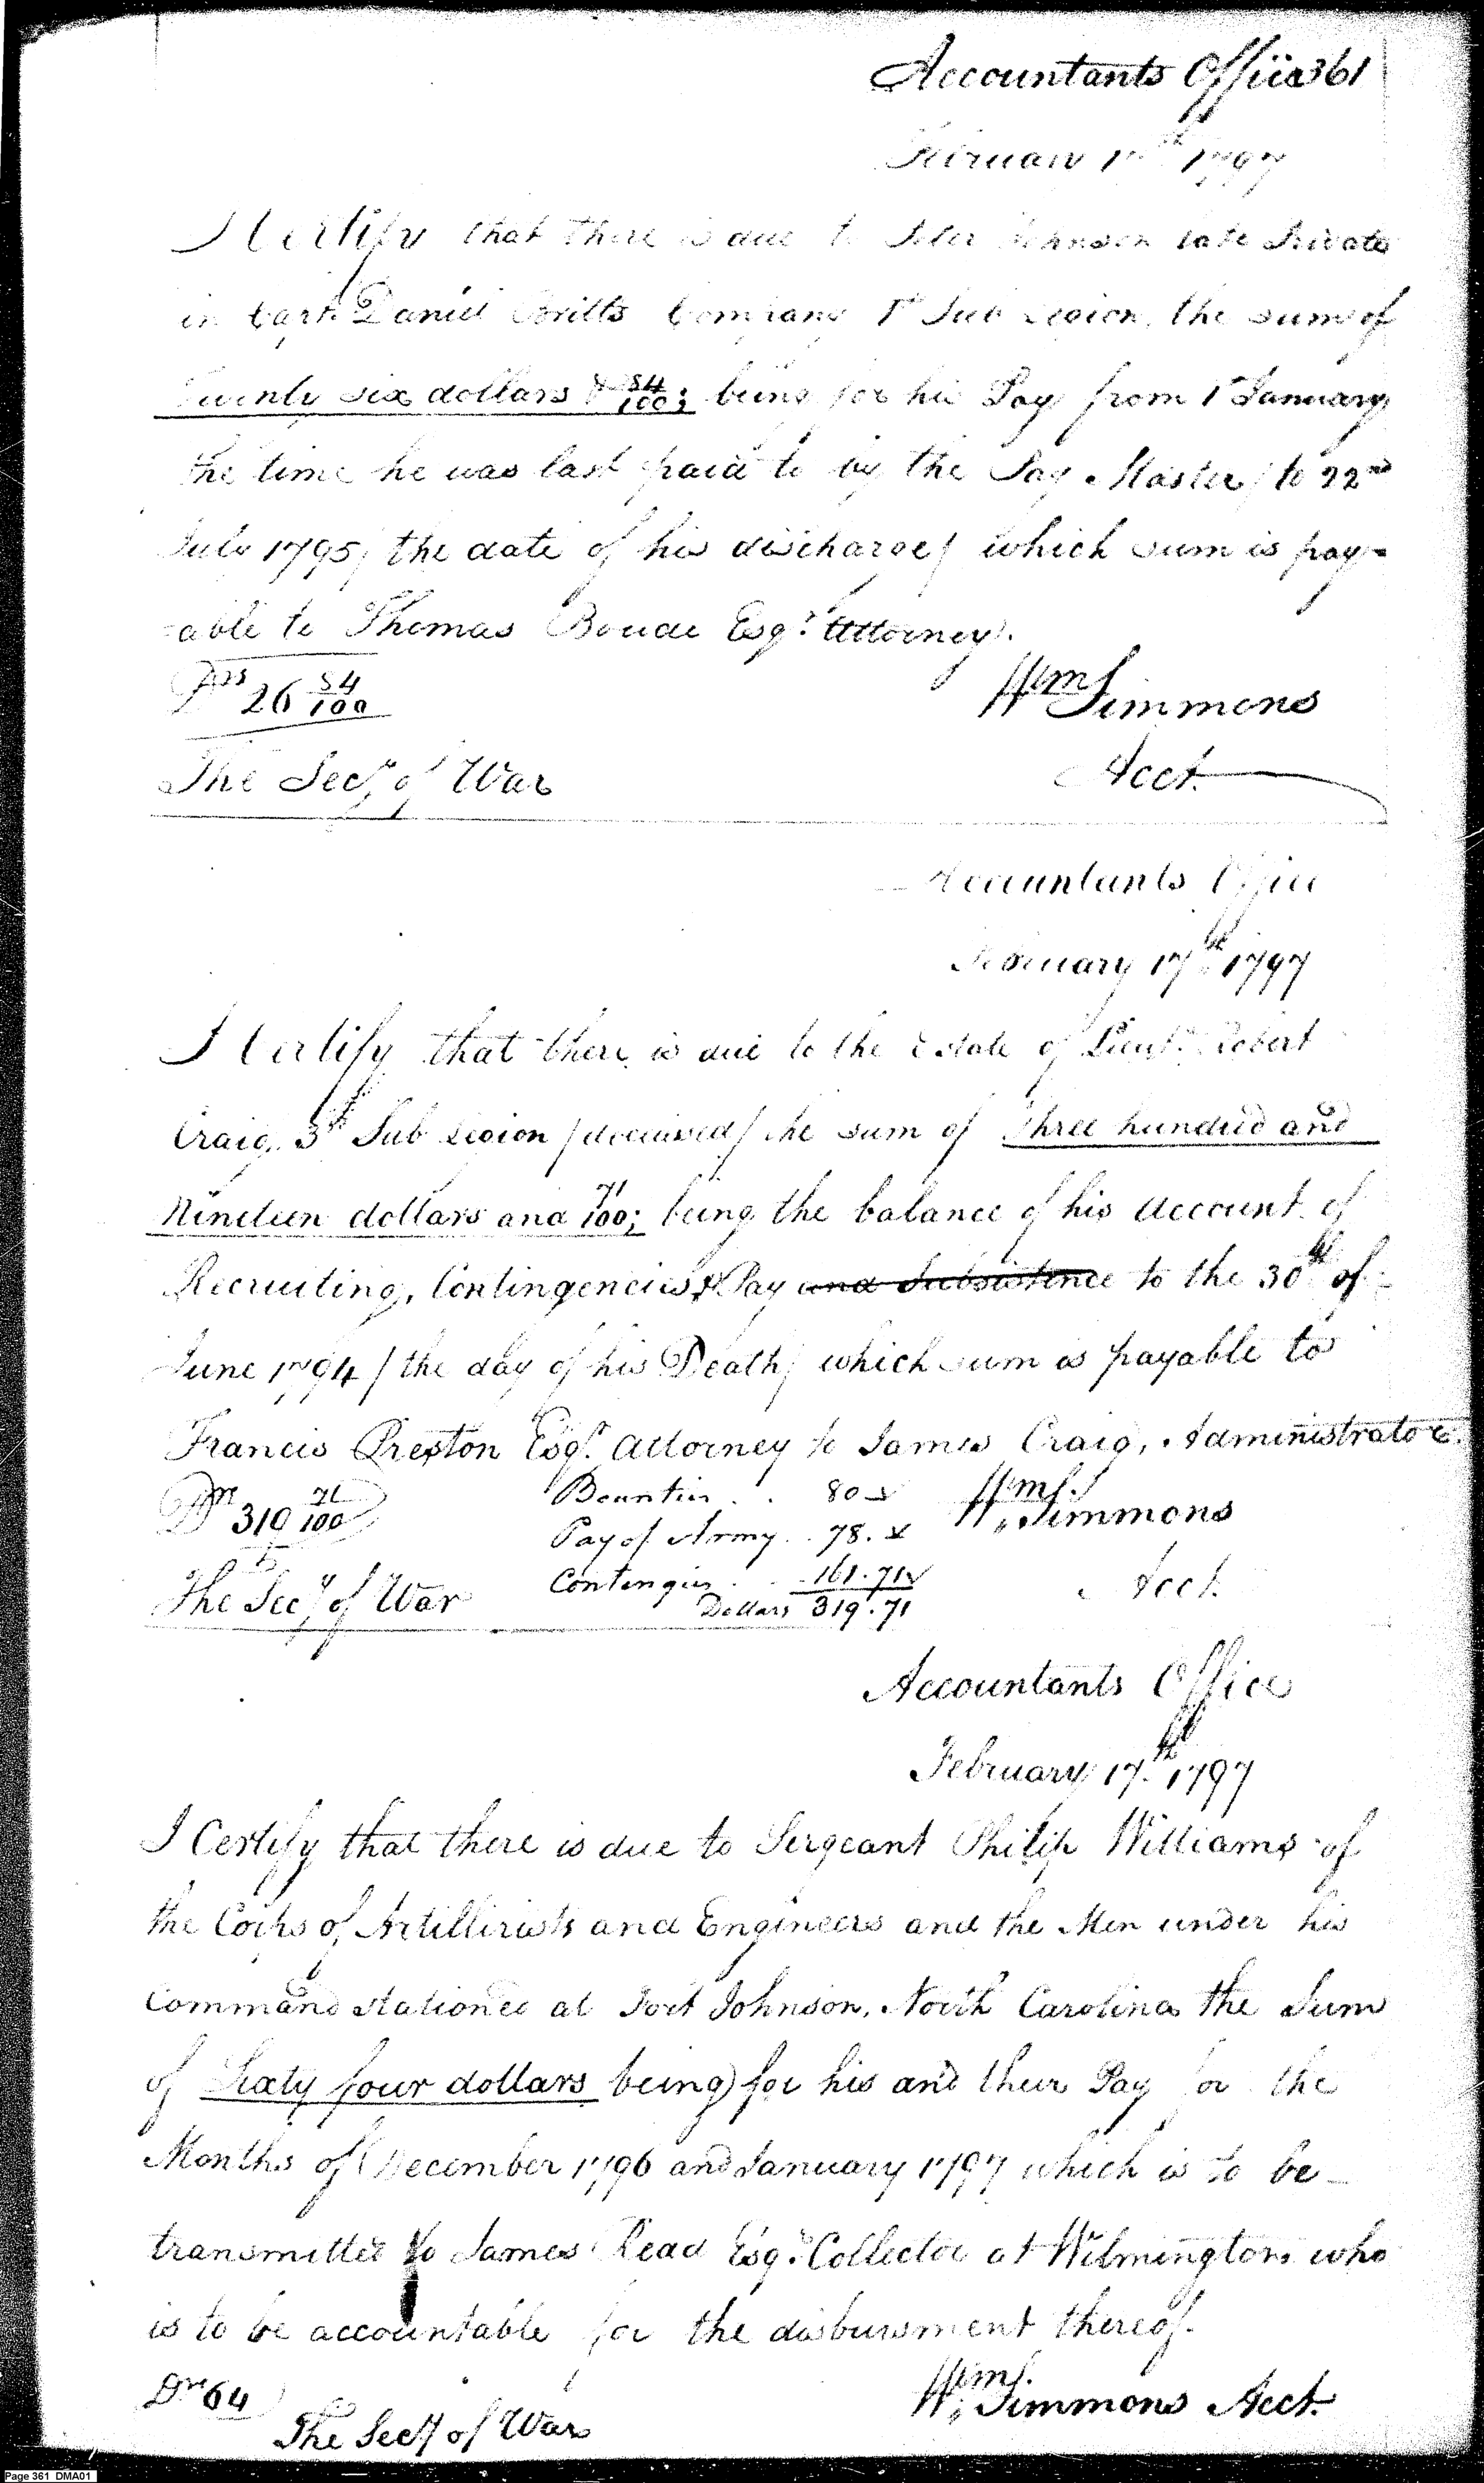 Accountants Office 361
February 17th 1797
I Certify that there is due to Peter Johnson late Private
in Capt. Daniel Britts Company 1st Sub Legion, the sum of
Twenty six dollars & 84/100; being for his Pay from 1st January
the time he was last paid to by the Pay Master/ to 22nd
July 1795/ the date of his discharge/ which sum is pay-
-able to Thomas Boude Esqr. Attorney.
Drs 26 84/100
Wm Simmons
The Secy of War
Acct.
Accountants Office
February 17th 1797
I Certify that there is due to the Estate of Lieut. Robert
Craig, 3d Sub Legion /deceased/ the sum of Three hundred and
Nineteen dollars and 71/100; being the balance of his Account of
Recruiting, Contingencies & Pay and Subsistence to the 30th of
June 1794 / the day of his Death/ which sum is payable to
Francis Preston Esqr. Attorney to James Craig, Administrator.
Bounties . . 80
Pay of Army . . 78.
Contingies . . 161.71
Dollars 319.71
Drs 319 71/100
Wm Simmons
The Secy of War
Acct.
Accountants Office
February 17th 1797
I Certify that there is due to Sergeant Philip Williams of
the Corps of Artillirists and Engineers and the Men under his
Command stationed at Fort Johnson, North Carolina the Sum
of Sixty four dollars being for his and their Pay for the
Months of December 1796 and January 1797 which is to be
transmitted to James Read Esqr. Collector at Wilmington who
is to be accountable for the disbursment thereof.
Drs 64
Wm Simmons Acct.
The Secy of War
Page 361 DMA01